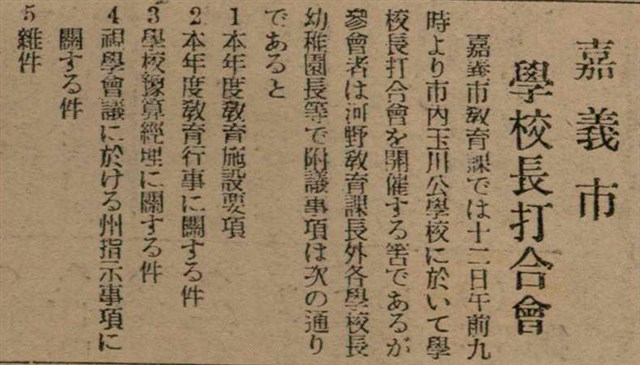 嘉義市
學校長打合會
嘉義市敎育課では十二日午前九
時より市內玉川公學校に於いて學
校長打合會を開催する筈であるが
參會者は河野敎育課長外各學校長
幼稚園長等で附議事項は次の通り
であると
1本年度敎育施設要項
2本年度敎育行事に關する件
3學校豫算經理に關する件
4視學會議に於ける州指示事項に
關する件
5雜件